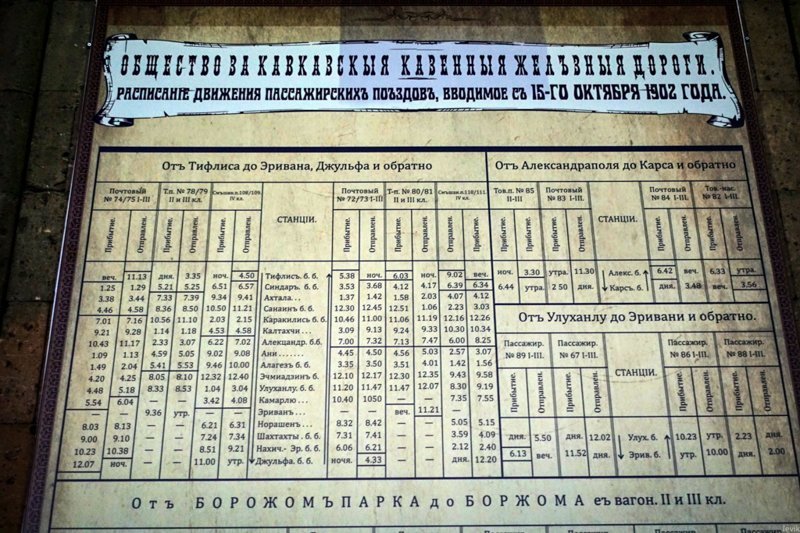 ОБЩЕСТВО ЗА КАВКАЗСКЫЯ КАЗЕННЫЯ ЖЕЛѢЗНЫЯ ДОРОГИ.
РАСПИСАНІЕ ДВИЖЕНИЯ ПАССАЖИРСКИХЪ ПОѢЗДОВЪ, ВВОДИМОЕ СЪ 15-ГО ОКТЯБРЯ 1902 ГОДА.
Отъ Тифлиса до Эривана, Джульфа и обратно
Почтовый № 74/75 I-III
Т.п. № 78/79 II и III кл.
IV кл.
СТАНЦІИ.
Почтовый № 72/73 I-III
Т-п. № 80/81 II и III кл.
IV кл.
Прибытие. Отправлен. Прибытие. Отправлен. Прибытие. Отправлен. Прибытие. Отправлен. Прибытие. Отправлен. Прибытие. Отправлен.
веч. 11.13 дня. 3.35 ноч. 4.50 Тифлисъ. б. б. 5.38 ноч. 6.03 ноч. 9.02 веч.
1.25 1.29 5.21 5.25 6.51 6.57 Синдаръ. б. б. 3.53 3.68 4.12 4.17 6.39 6.34
3.38 3.44 7.33 7.39 9.34 9.41 Ахтала... 1.37 1.42 1.58 2.03 4.07 4.12
4.46 4.58 8.36 8.50 10.50 11.21 Санаинъ б. б. 12.30 12.45 12.51 1.06 2.23 3.03
7.01 7.16 10.56 11.10 2.03 2.15 Каракилисъ б. б. 10.46 11.00 11.06 11.19 12.16 12.26
9.21 9.28 1.14 1.18 4.53 4.58 Калтахчи... 3.09 9.13 9.24 9.33 10.30 10.34
10.43 11.17 2.33 3.07 6.22 7.02 Александр. б.б. 7.00 7.32 7.13 7.47 6.00 8.25
1.09 1.13 4.59 5.05 9.02 9.08 Ани....... 4.45 4.50 4.56 5.03 2.57 3.07
1.49 2.04 5.41 5.53 9.46 10.00 Алагезъ б. б. 3.35 3.50 3.51 4.01 1.42 1.56
4.20 4.25 8.05 8.10 12.32 12.40 Эчмиадзинъ б. б. 12.10 12.17 12.30 12.35 9.43 9.58
4.48 5.18 8.33 8.53 1.04 3.04 Улуханлу. б. б. 11.20 11.47 11.47 12.07 8.30 9.19
5.54 6.04 — — 3.42 4.08 Камарлю... 10.40 1050 — — 7.35 7.55
— — 9.36 утр. — — Эриванъ... — — веч. 11.21 — —
8.03 8.13 — — 6.21 6.31 Норашенъ.. 8.32 8.42 — — 5.05 5.15
9.00 9.10 — — 7.24 7.34 Шахтахты . б. б. 7.31 7.41 — — 3.59 4.09
10.23 10.38 — — 8.51 9.21 Нахич.- Эр. б. б. 6.06 6.21 — — 2.12 2.40
12.07 ноч. — — 11.00 утр. Джульфа. б. б. ночя. 4.33 — — дня. 12.20
Отъ Александраполя до Карса и обратно
Тов.п. № 85 II-III
Почтовый № 83 I-III.
СТАНЦІИ.
Почтовый № 84 I-III.
Тов.-пас. № 82 I-III.
Прибытие. Отправлен. Прибытие. Отправлен. Прибытие. Отправлен. Прибытие. Отправлен.
ноч. 3.30 утра. 11.30 Алекс. б. 6.42 веч. 6.33 утра.
6.44 утра. 2 50 дня. Карсъ. б. дня. 3.48 веч. 3.56
Отъ Улуханлу до Эривани и обратно.
Пассажир. № 89 I-III.
Пассажир. № 67 I-III.
СТАНЦІИ.
Пассажир. № 86 I-III.
Пассажир. № 88 I-III.
Прибытие. Отправлен. Прибытие. Отправлен. Прибытие. Отправлен. Прибытие. Отправлен.
дня. 5.50 дня. 12.02 Улух. б. 10.23 утр. 2.23 дня.
6.13 веч. 11.52 дня. Эрив. б. утр. 10.00 дня. 2.00
Отъ БОРОЖОМЪПАРКА до БОРЖОМА еъ вагон. II и III кл.